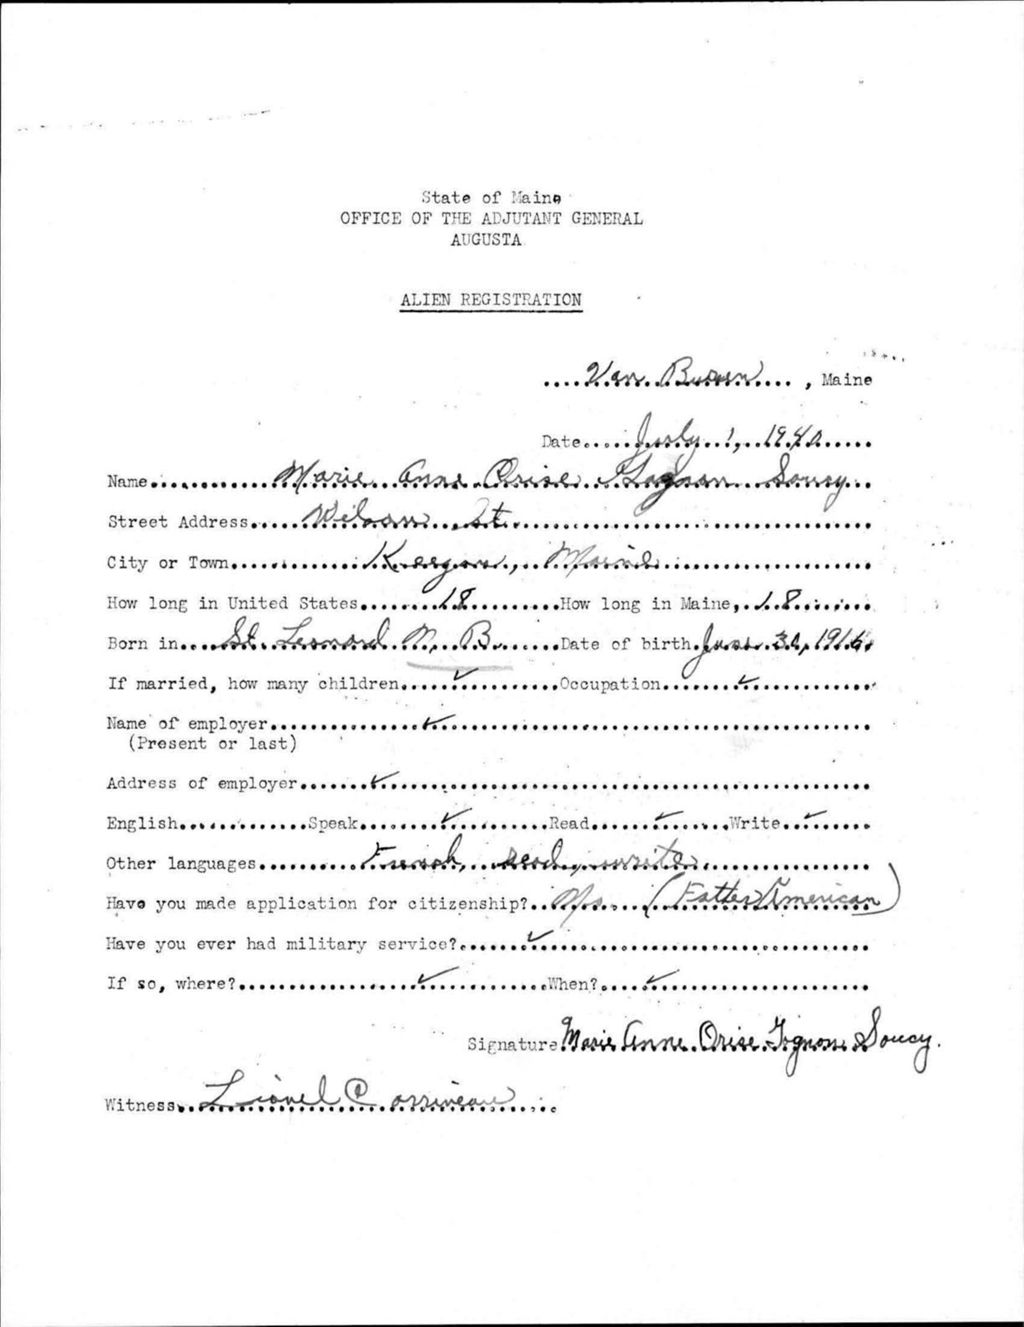 State of Maine
OFFICE OF THE ADJUTANT GENERAL
AUGUSTA
ALIEN REGISTRATION
....Van Buren...., Maine
Date.....July 1, 1940.....
Name............Marie Anne Orise Gagnon Soucy...
Street Address.....Wilson St...............
City or Town............Keegan, Maine............
How long in United States.......18.........How long in Maine,.18......
Born in....St. Leonard N. B.......Date of birth.June 30, 1916.
If married, how many children.....✓.........Occupation.......✓............
Name of employer..............✓....................
(Present or last)
Address of employer.......✓....................
English............Speak........✓........Read......✓.....Write..✓......
Other languages..........French, read, write...............
Have you made application for citizenship?..No....(Father American)
Have you ever had military service?......✓....................
If so, where?..................✓..........When?.....✓..................
Signature Marie Anne Orise Gagnon Soucy.
Witness..Lionel Corriveau......